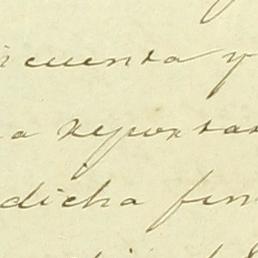 cuenta y
a reportar
dicha fin